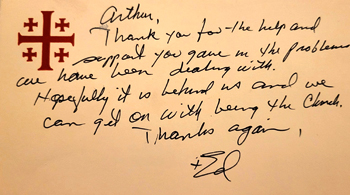 Arthur,
Thank you for the help and
support you gave in the problems
we have been dealing with.
Hopefully it is behind us and we
can get on with being the Church.
Thanks again,
+Ed